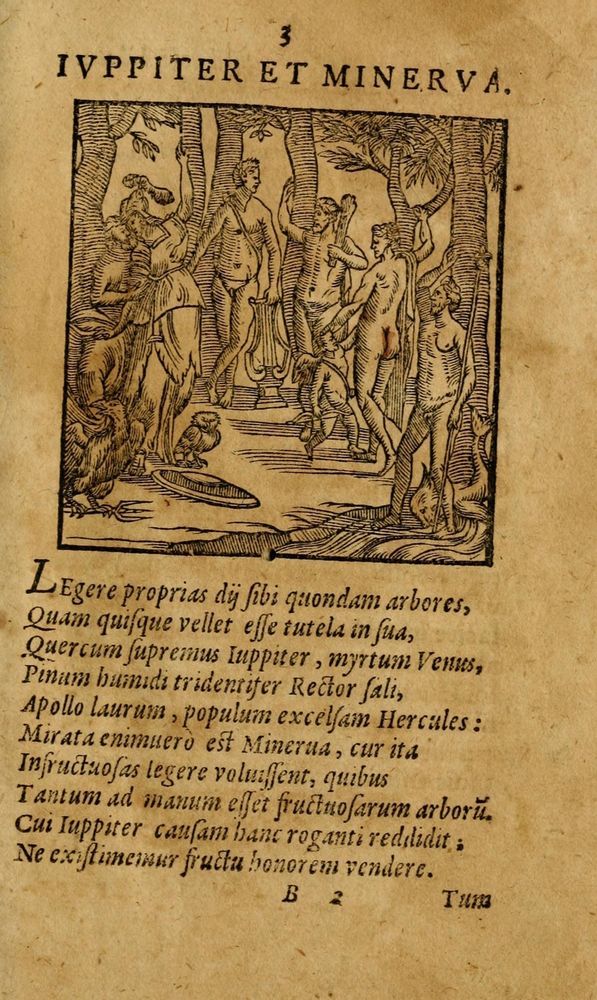 3
IVPPITER ET MINERVA.
LEgere proprias dij ſibi quondam arbores,
Quam quiſque vellet eſſe tutela in ſua,
Quercum ſupremus Iuppiter, myrtum Venus,
Pinum humidi tridentifer Rector ſali,
Apollo laurum, populum excelſam Hercules:
Mirata enimuerò eſt Minerua, cur ita
Infructuoſas legere voluiſſent, quibus
Tantum ad manum eſſet fructuoſarum arborũ.
Cui Iuppiter cauſam hanc roganti reddidit;
Ne exiſtimemur fructu honorem vendere.
B 2 Tum